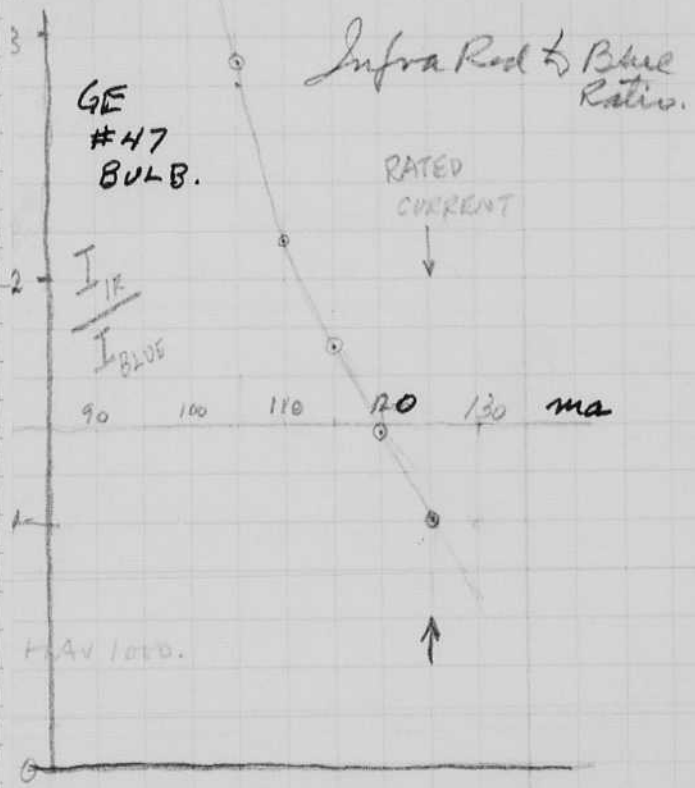 3
Infra Red to Blue
Ratio.
GE
#47
BULB.
RATED
CURRENT
2
I IR
I BLUE
90 100 110 120 130 ma
1
1000.
0